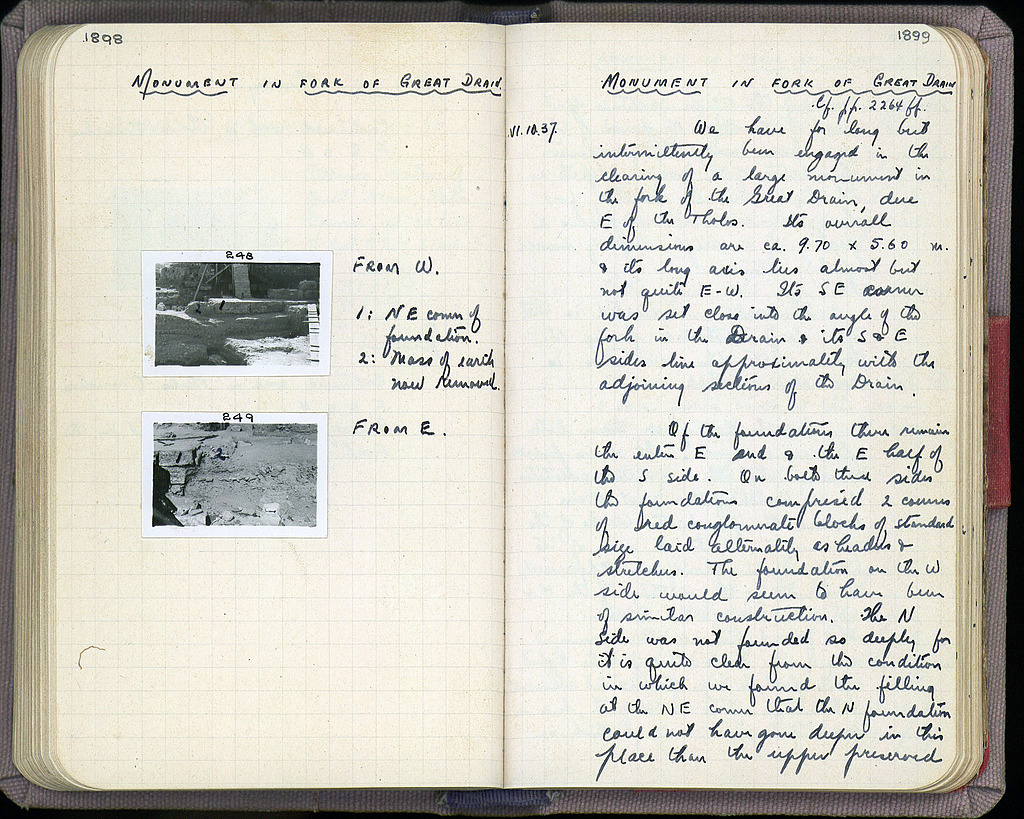 1898
MONUMENT IN FORK OF GREAT DRAIN
248
FROM W.
1: NE corner of
foundation.
2: Mass of earth
now removed.
249
FROM E.
1899
MONUMENT IN FORK OF GREAT DRAIN
Cf. pp. 2264 ff.
VI.10.37.
We have for long but
intermittently been engaged in the
clearing of a large monument in
the fork of the Great Drain, due
E of the Tholos. Its overall
dimensions are ca. 9.70 x 5.60 m.
& its long axis lies almost but
not quite E-W. Its SE corner
was set close into the angle of the
fork in the Drain & its S & E
sides line approximately with the
adjoining sections of the Drain.
Of the foundations there remain
the entire E end & the E half of
the S side. On both these sides
the foundations comprised 2 courses
of red conglomerate blocks of standard
size laid alternately as headers &
stretchers. The foundation on the W
side would seem to have been
of similar construction. The N
side was not founded so deeply for
it is quite clear from the condition
in which we found the filling
at the NE corner that the N foundation
could not have gone deeper in this
place than the upper preserved